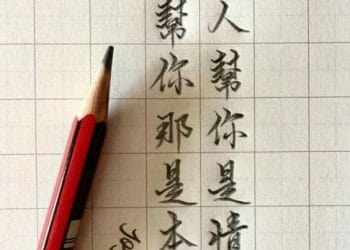 人幫你是情
幫你那是本